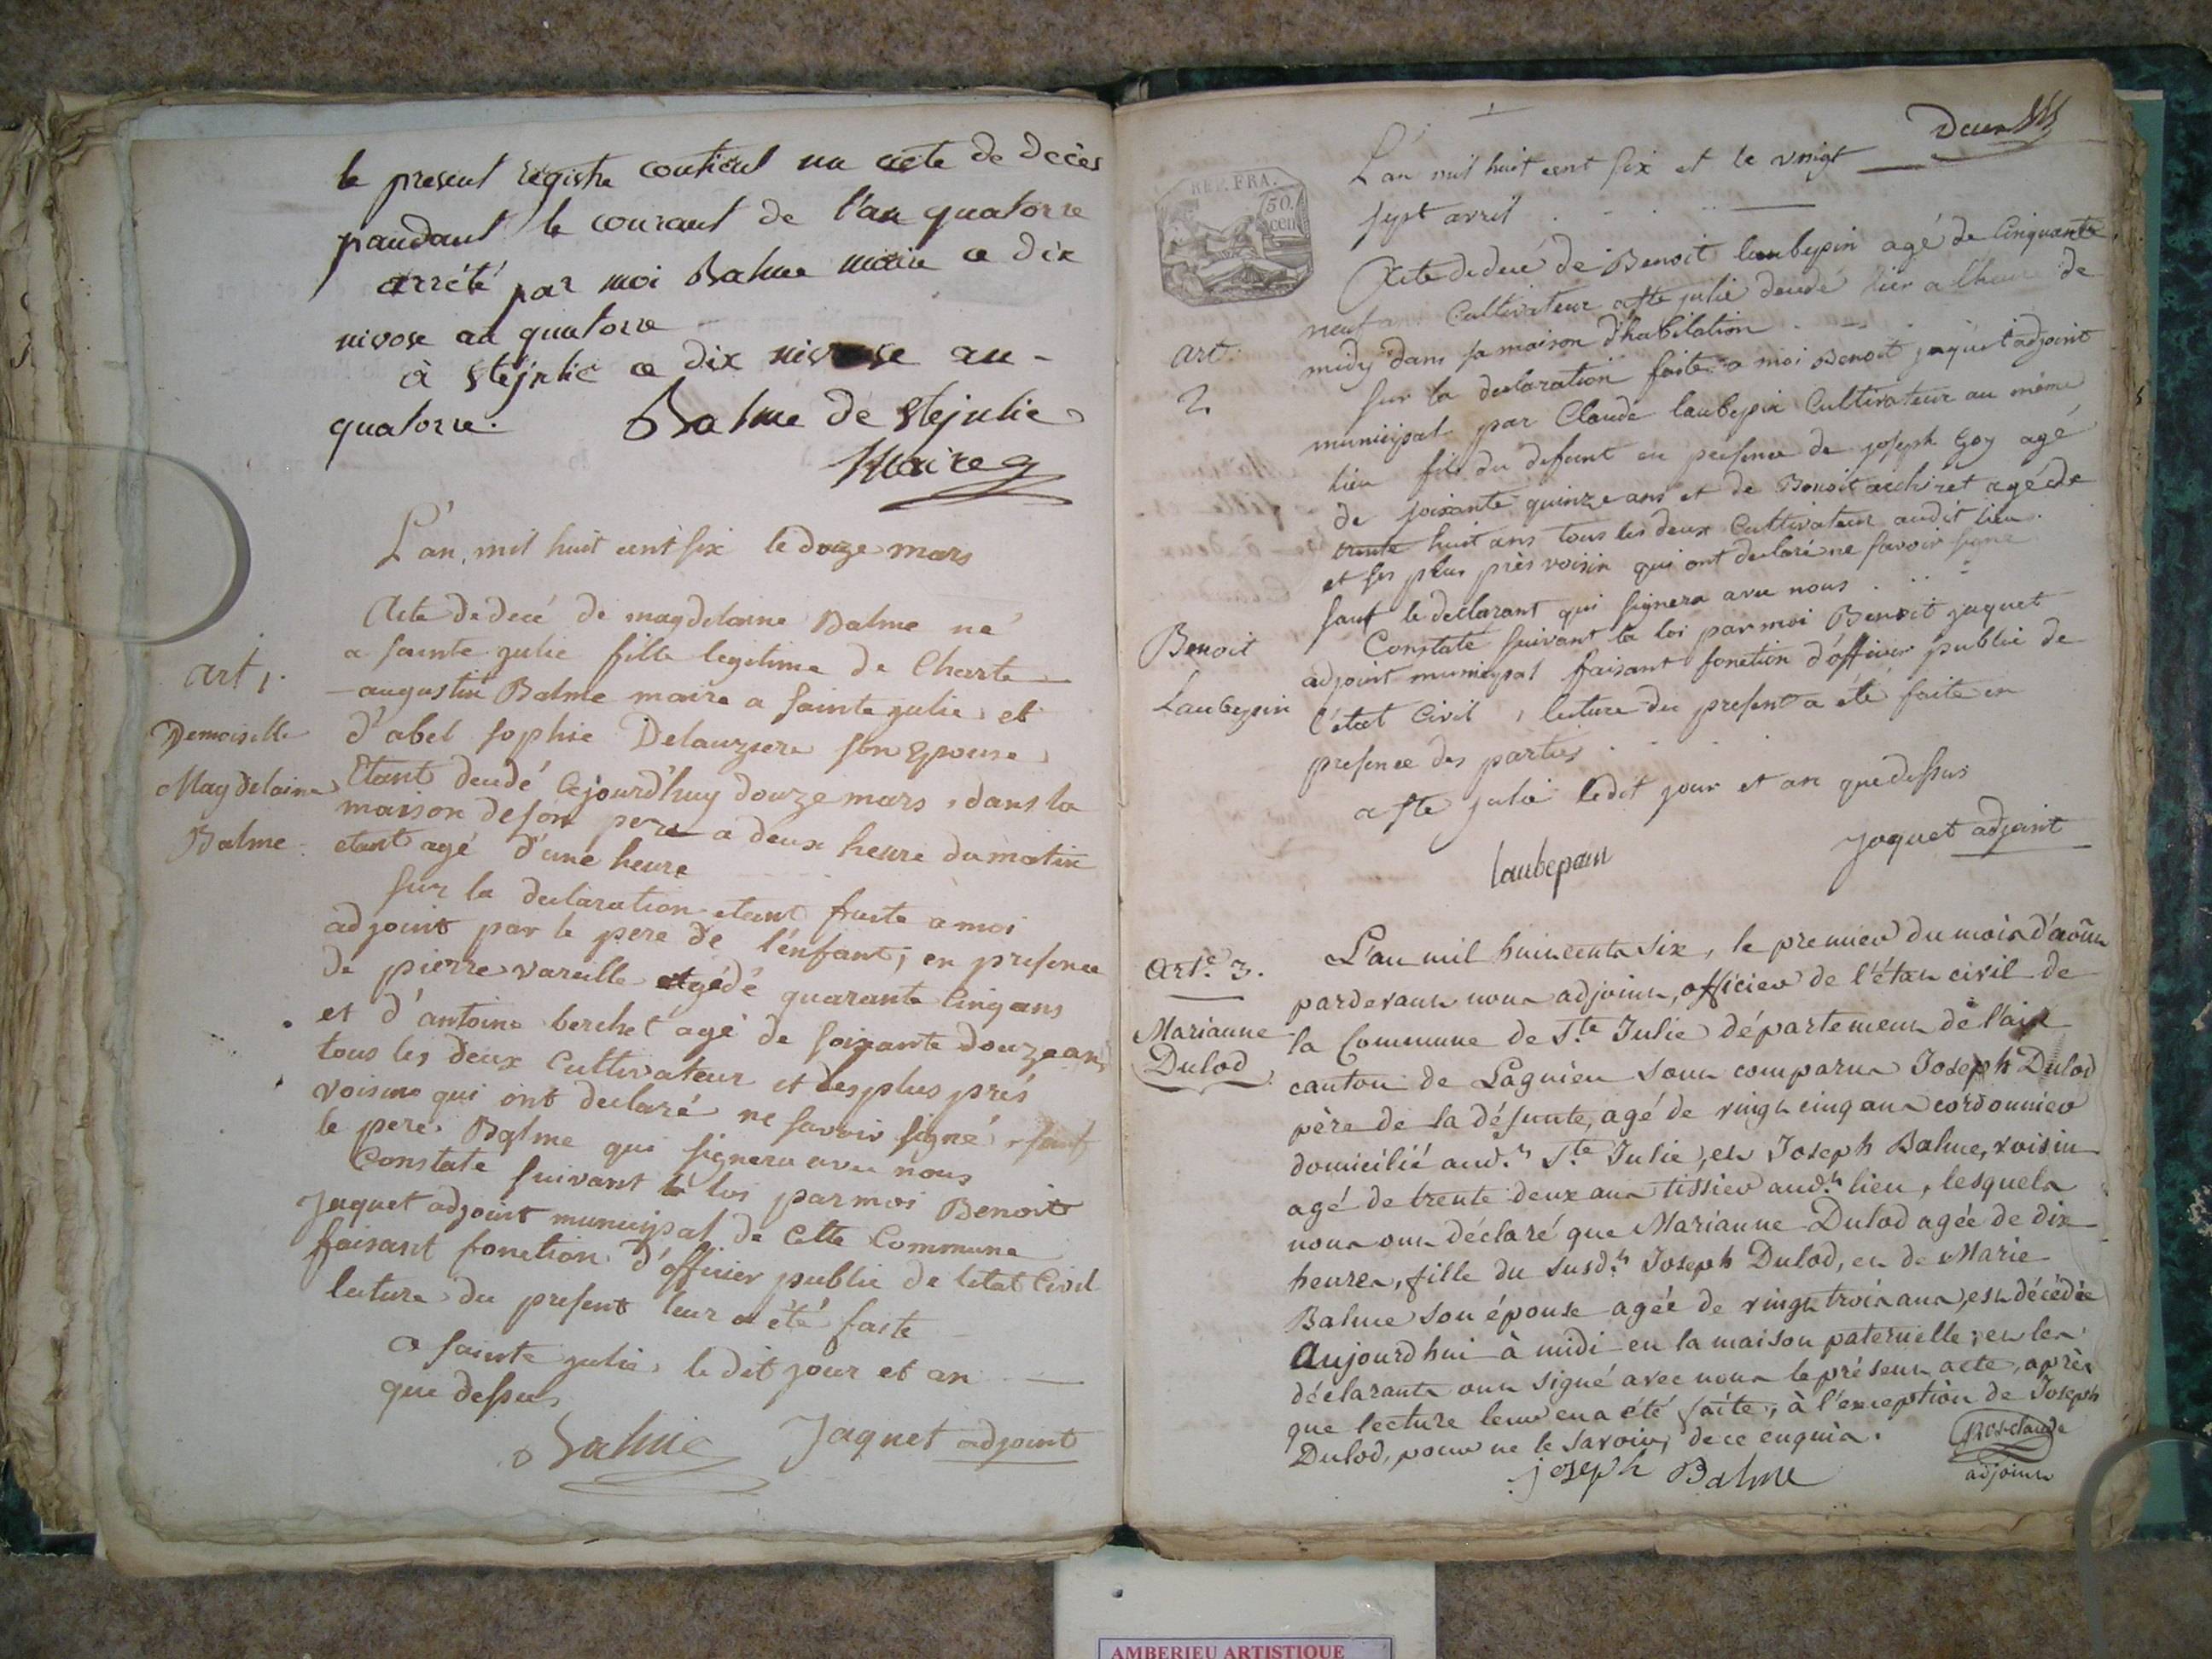 le present registre contient un acte de decès
pandant le courant de l'an quatorze
arrété par moi Balme maire ce dix
nivose an quatorze
à Ste julie ce dix nivose an -
quatorze. Balme de Ste julie
Maire
L'an mil huit cent six le douze mars
art 1.
Demoiselle
Magdelaine
Balme
Acte de decé de magdelaine Balme né
a sainte julie fille legitime de Charle
augustin Balme maire a sainte julie et
d'abel sophie Delauziere son Epouse
Etant decedé Cejourd'huy douze mars, dans la
maison de son pere a deux heure du matin
etant agé d'une heure
sur la declaration etant faite a moi
adjoint par le pere de l'enfant; en presence
de pierre vareille agé de quarante Cinq ans
et d'antoine berchet agé de soixante douze ans
tous les deux Cultivateur et des plus près
voisins qui ont declaré ne savoir signé, sauf
le pere Balme qui signera avec nous
Constaté suivant la loi par moi Benoit
Jaquet adjoint municipal de Cette Commune
faisant fonction d'officier public de letat Civil
lecture du present leur a été faite
a sainte julie, le dit jour et an
que dessus
Balme Jaquet adjoint
1
Deux
REP. FRA.
50.
cen
L'an mil huit cent six et le vingt
sept avril
art.
2
Benoit
Laubepin
Acte de decé de Benoit laubepin agé de Cinquante
neuf an Cultivateur a Ste julie decedé hier a lheure de
midy dans sa maison d'habitation
sur la declaration faite a moi Benoit jaquet adjoint
municipal par Claude laubepin Cultivateur au même
lieu fils du defunt en presence de joseph Goy agé
de soixante quinze ans et de Benoit agé de
trente huit ans tous les deux Cultivateur audit lieu.
et ses plus près voisin qui ont declaré ne savoir signé
sauf le declarant qui signera avec nous
Constaté suivant la loi par moi Benoit jaquet
adjoint municipal faisant fonction d'officier public de
l'état Civil, lecture du present a été faite en
presence des parties
a Ste julie ledit jour et an que dessus
laubepain Jaquet adjoint
Art.e 3.
Marianne
Dulod
L'an mil huit cent six, le premier du mois d'août
pardevant nous adjoint, officier de l'état civil de
la Commune de S.te Julie département de l'ain
canton de Lagnieu sont comparus Joseph Dulod
père de la défunte, agé de vingt cinq ans cordonnier
domicilié aud.t S.te Julie, et Joseph Balme, voisin
agé de trente deux ans tissier aud.t lieu, lesquels
nous ont déclaré que Marianne Dulod agée de dix
heures, fille du susd.t Joseph Dulod, et de Marie
Balme son épouse agée de vingt trois ans, est décédée
Aujourdhui à midi en la maison paternelle; et les
déclarants ont signé avec nous le présent acte, après
que lecture leur en a été faite, à l'exception de Joseph
Dulod, pour ne le savoir, de ce enquis.
joseph Balme
adjoint
AMBERIEU ARTISTIQUE